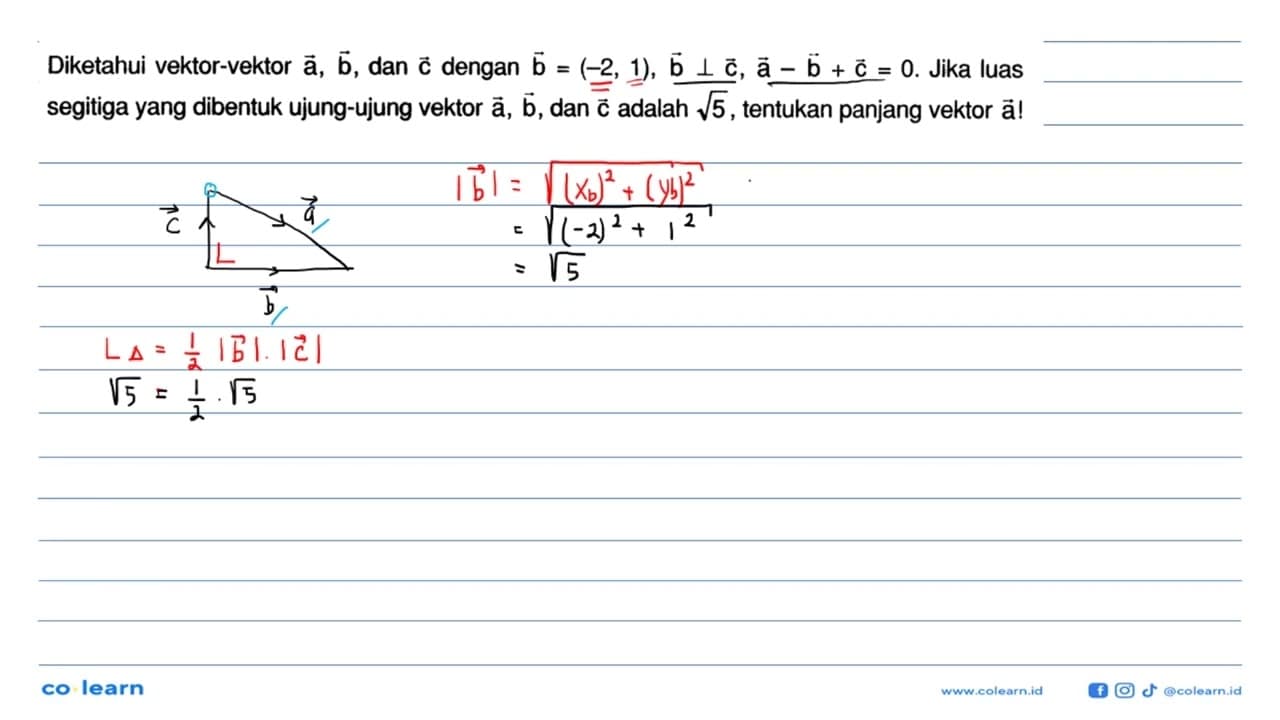 Diketahui vektor-vektor a⃗, b⃗, dan c⃗ dengan b⃗ = (–2, 1), b⃗ ⊥ c⃗, a⃗ – b⃗ + c⃗ = 0. Jika luas
segitiga yang dibentuk ujung-ujung vektor a⃗, b⃗, dan c⃗ adalah √5, tentukan panjang vektor a⃗!
c⃗
a⃗
b⃗
|b⃗| = √((x_b)² + (y_b)²)
= √((-2)² + 1²)
= √5
L△ = 1/2 |b⃗| . |c⃗|
√5 = 1/2 . √5
co·learn
www.colearn.id
@colearn.id